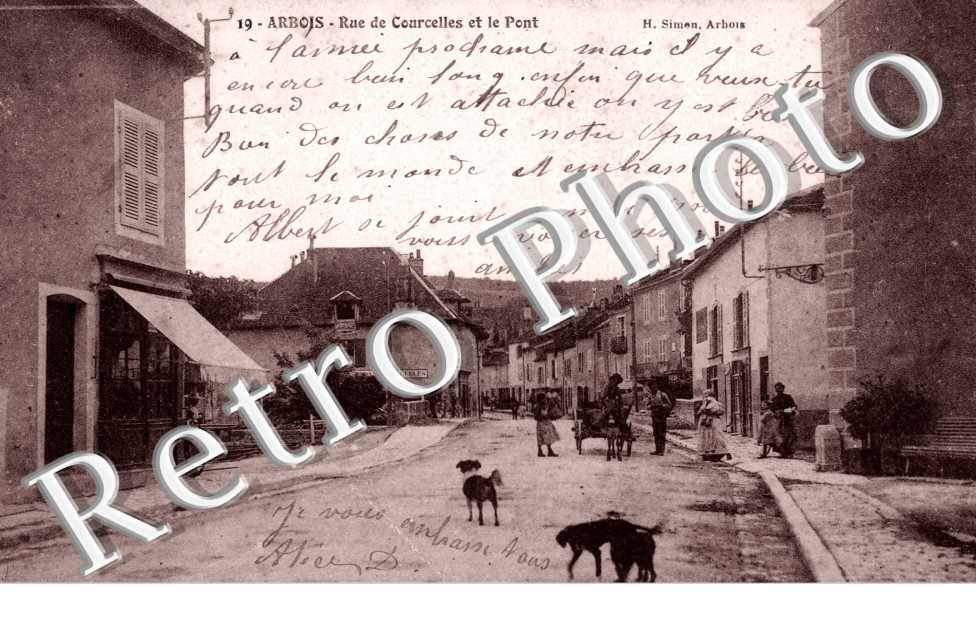 19 - ARBOIS - Rue de Courcelles et le Pont
H. Simon, Arbois
à l'année prochaine mais il y a
encore bien long enfin que veux tu
quand on est attachée on y est
Bon des choses de notre part
tout le monde et embrasse
pour moi
Albert se joint
vous
Retro Photo
Je vous embrasse tous
Alice D.